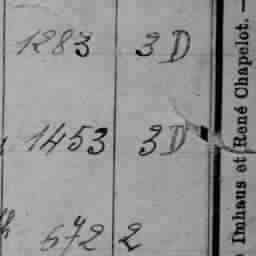 1283 3D
1453 3D
672 2
Imhaus et René Chapelot. —